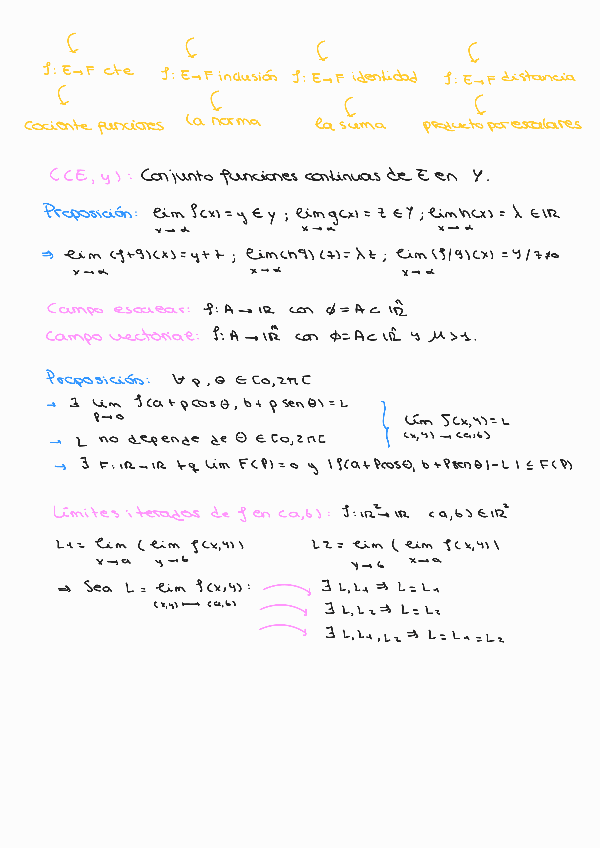 f: E→F cte   f: E→F inclusión   f: E→F identidad   f: E→F distancia
cociente funciones   la norma   la suma   producto por escalares
C(E, y): Conjunto funciones continuas de E en Y.
Proposición: lim f(x) = y ∈ Y ; lim g(x) = z ∈ Y ; lim h(x) = λ ∈ IR
x→α   x→α   x→α
⇒ lim (f+g)(x) = y+z ; lim (hg)(z) = λz ; lim (f/g)(x) = Y/z≠0
x→α   x→α   x→α
Campo escalar: f: A → IR con ϕ = A ⊂ IR^n
Campo vectorial: f: A → IR^m con ϕ = A ⊂ IR^n y M > 1.
Proposición: ∀ρ, θ ∈ [0, 2π[
→ ∃ lim f(a + ρcosθ, b + ρ senθ) = L
ρ→0
lim f(x,y) = L
(x,y)→(a,b)
→ L no depende de θ ∈ [0, 2π[
→ ∃ F: IR → IR tq lim F(ρ) = 0 y |f(a + ρcosθ, b + ρsenθ) - L| ≤ F(ρ)
Límites iterados de f en (a,b): f: IR² → IR (a,b) ∈ IR²
L1 = lim ( lim f(x,y))   L2 = lim ( lim f(x,y))
x→a   y→b   y→b   x→a
⇒ Sea L = lim f(x,y):   ∃ L, L1 ⇒ L = L1
(x,y)→(a,b)
∃ L, L2 ⇒ L = L2
∃ L, L1, L2 ⇒ L = L1 = L2